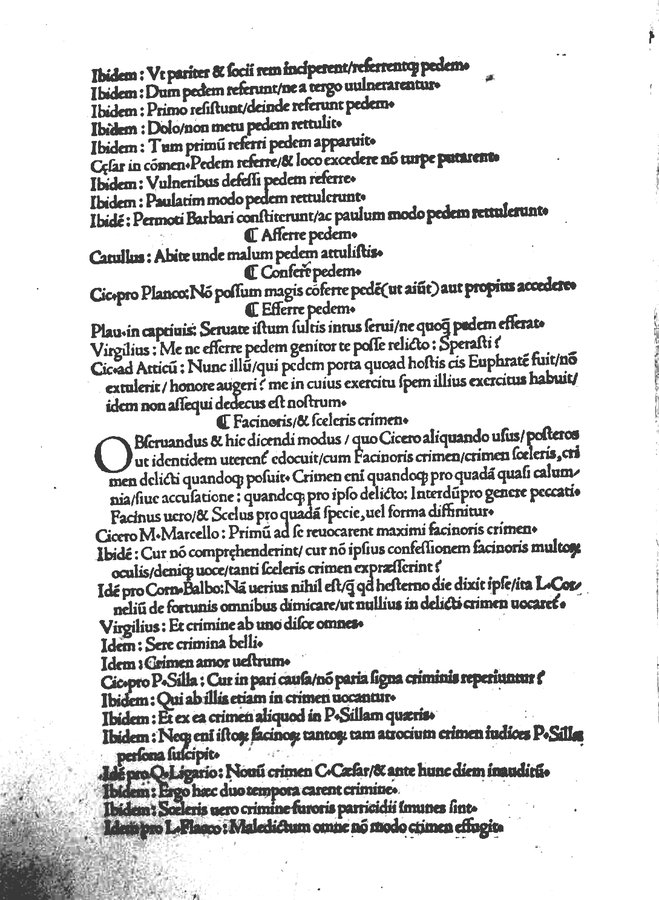 Ibidem : Vt pariter & socii rem inciperent/referrentqꝫ pedem•
Ibidem : Dum pedem referunt/ne a tergo uulnerarentur•
Ibidem : Primo resistunt/deinde referunt pedem•
Ibidem : Dolo/non metu pedem rettulit•
Ibidem : Tum primū referri pedem apparuit•
Cęsar in cōmen•Pedem referre/& loco excedere nō turpe putarent•
Ibidem : Vulneribus defessi pedem referre•
Ibidem : Paulatim modo pedem rettulerunt•
Ibidē : Permoti Barbari constiterunt/ac paulum modo pedem rettulerunt•
¶ Afferre pedem•
Catullus : Abite unde malum pedem attulistis•
¶ Conferre pedem•
Cic•pro Planco:Nō possum magis cōferre pedē(ut aiūt) aut propius accedere•
¶ Efferre pedem•
Plau•in captiuis: Seruate istum sultis intus serui/ne quoqꝫ pedem efferat•
Virgilius : Me ne efferre pedem genitor te posse relicto : Sperasti ?
Cic•ad Atticū : Nunc illū/qui pedem porta quoad hostis cis Euphratē fuit/nō
extulerit/ honore augeri ? me in cuius exercitu spem illius exercitus habuit/
idem non assequi dedecus est nostrum•
¶ Facinoris/& sceleris crimen•
OBseruandus & hic dicendi modus / quo Cicero aliquando usus/posteros
ut identidem uterent᷑ edocuit/cum Facinoris crimen/crimen sceleris, cri
men delicti quandoqꝫ posuit• Crimen enī quandoqꝫ pro quadā quasi calum/
nia/siue accusatione ; quandoqꝫ pro ipso delicto; Interdūpro genere peccati•
Facinus uero/& Scelus pro quadā specie,uel forma diffinitur•
Cicero M•Marcello : Primū ad se reuocarent maximi facinoris crimen•
Ibidē : Cur nō compręhenderint/ cur nō ipsius confessionem facinoris multoꝝ
oculis/deniqꝫ uoce/tanti sceleris crimen expræsserint ?
Idē pro Corn•Balbo:Nā uerius nihil est/q̄ qd hesterno die dixit ipse/ita L•Cor/
neliū de fortunis omnibus dimicare/ut nullius in delicti crimen uocaret᷑ •
Virgilius : Et crimine ab uno disce omnes•
Idem : Sere crimina belli•
Idem : Crimen amor uestrum•
Cic•pro P•Silla : Cur in pari causa/nō paria signa criminis reperiuntur ?
Ibidem : Qui ab illis etiam in crimen uocantur•
Ibidem : Et ex ea crimen aliquod in P•Sillam quæris•
Ibidem : Neqꝫ enī istoꝝ facinoꝝ tantoꝝ tam atrocium crimen iudices P•Silla
persona suscipit•
Idē pro Q•Ligario : Nouū crimen C•Cæsar/& ante hunc diem inauditū•
Ibidem : Ergo hæc duo tempora carent crimine•
Ibidem : Sceleris uero crimine furoris parricidii imunes sint•
Idem pro L•Planco : Maledictum omne nō modo crimen effugit•